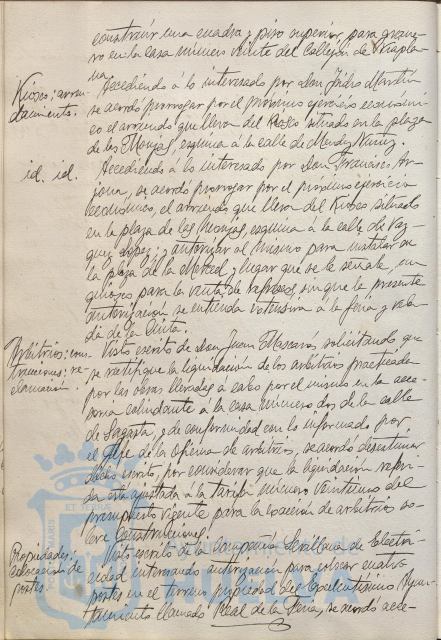 construir una cuadra y piso superior, para grane-
ro en la casa número veinte del Callejón de
na.
Kiosco; arren-
damiento.
Accediendo á lo interesado por Don Isidro Martín
se acordó prorrogar por el próximo ejercicio económi-
co el arriendo que lleva del Kiosco situado en la plaza
de las Monjas, esquina á la calle de Mendez Nuñez.
id. id.
Accediendo á lo interesado por Don Francisco
se acordó prorrogar por el próximo ejercicio
económico, el arriendo que lleva del Kiosco situado
en la plaza de las Monjas esquina á la calle de Vaz-
quez Lopez; y autorizar al mismo para instalar en
la plaza de la Merced y lugar que se le señale, un
quiosco para la venta de refrescos, sin que la presente
autorización se entienda extensiva á la feria y vela-
da de la Cinta.
Arbitrios; cons-
trucciones; re-
clamación.
Visto escrito de Don Juan Mascarós solicitando que
se rectifique la liquidación de los arbitrios practicada
por las obras llevadas á cabo por el mismo en la acce-
soria colindante á la casa número dos de la calle
de Sagasta, y de conformidad con lo informado por
el Jefe de la Oficina de arbitrios, se acordó desestimar
dicho escrito, por considerar que la liquidación referi-
da está ajustada á la tarifa número veintiuno del
presupuesto vigente para la exacción de arbitrios so-
bre Construcciones.
Propiedades;
colocación de
postes.
Visto escrito de la Compañía Sevillana de Electri-
cidad interesando autorización para colocar cuatro
postes en el terreno propiedad del Excelentísimo Ayun-
tamiento llamado Real de la Feria, se acordó acce-
PORTUS MARIS
ET TERRAE
Ayuntamiento de
Huelva